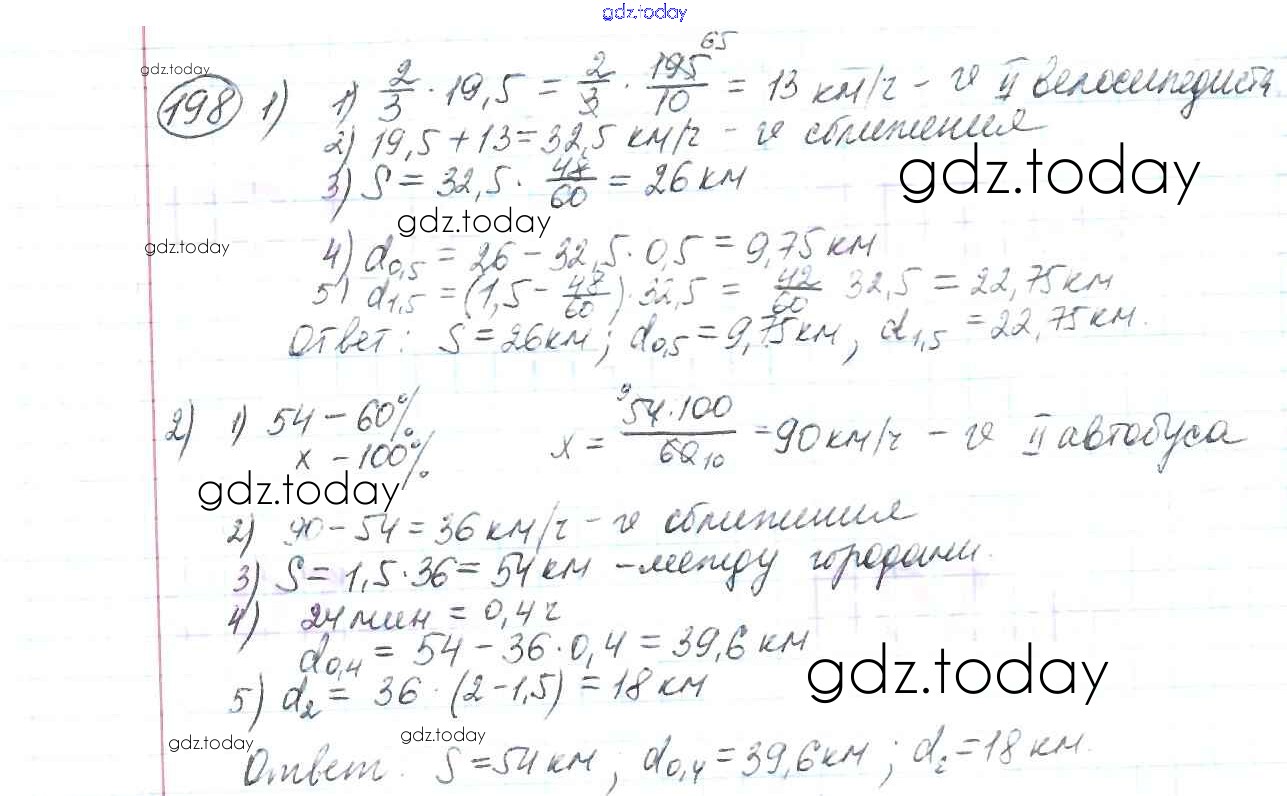 gdz.today
198 1) 1) 2/3 · 19,5 = 2/3 · 195/10 65 = 13 км/ч - v II велосипедиста
gdz.today
2) 19,5 + 13 = 32,5 км/ч - v сближения
gdz.today
3) S = 32,5 · 48/60 = 26 км
gdz.today
gdz.today
4) d0,5 = 26 - 32,5 · 0,5 = 9,75 км
5) d1,5 = (1,5 - 48/60) · 32,5 = 42/60 32,5 = 22,75 км
Ответ: S = 26 км; d0,5 = 9,75 км, d1,5 = 22,75 км.
2) 1) 54 - 60%
x - 100%
x = 9 54·100/60 10 = 90 км/ч - v II автобуса
gdz.today
2) 90 - 54 = 36 км/ч - v сближения
3) S = 1,5 · 36 = 54 км - между городами.
4) 24 мин = 0,4 ч
d0,4 = 54 - 36 · 0,4 = 39,6 км
gdz.today
5) d2 = 36 · (2 - 1,5) = 18 км
gdz.today
gdz.today
Ответ. S = 54 км, d0,4 = 39,6 км; d2 = 18 км.